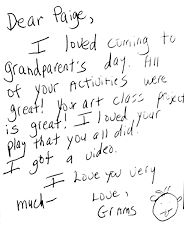 Dear Paige,
I loved coming to
grandparent's day. All
of your activities were
great! Your art class project
is great! I loved your
play that you all did!
I got a video.
I Love you very
much—
Love,
Grams